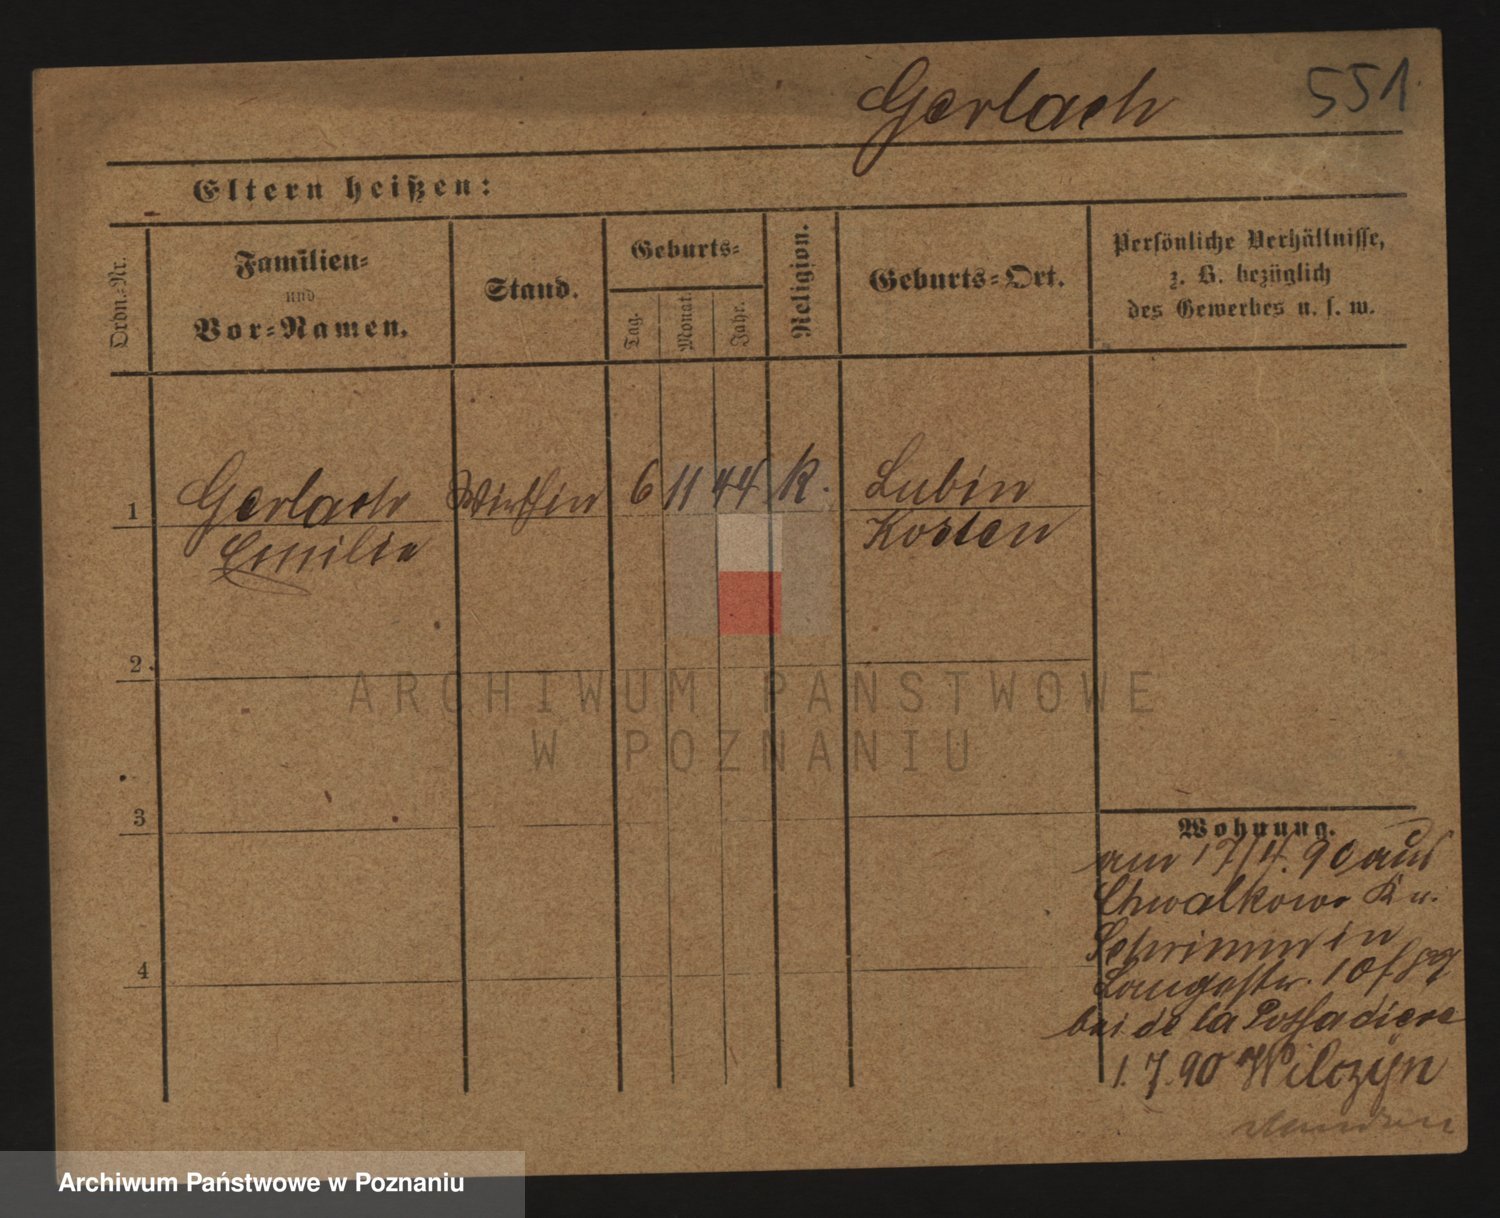 Gerlach 551
Eltern heißen:
Ordn.-Nr.
Familien-
und
Vor-Namen.
Stand.
Geburts-
Tag.
Monat.
Jahr.
Religion.
Geburts-Ort.
Persönliche Verhältnisse,
z. B. bezüglich
des Gewerbes u. s. w.
1 Gerlach Wirthin 6 11 44 K. Lubin
Emilie Kosten
2
3
4
Wohnung.
am 17/4. 90 aus
Chwalkowo K
Schrimm in
Langestr. 10
bei de la
1. 7. 90 Wilczyn
ARCHIWUM PAŃSTWOWE
W POZNANIU
Archiwum Państwowe w Poznaniu